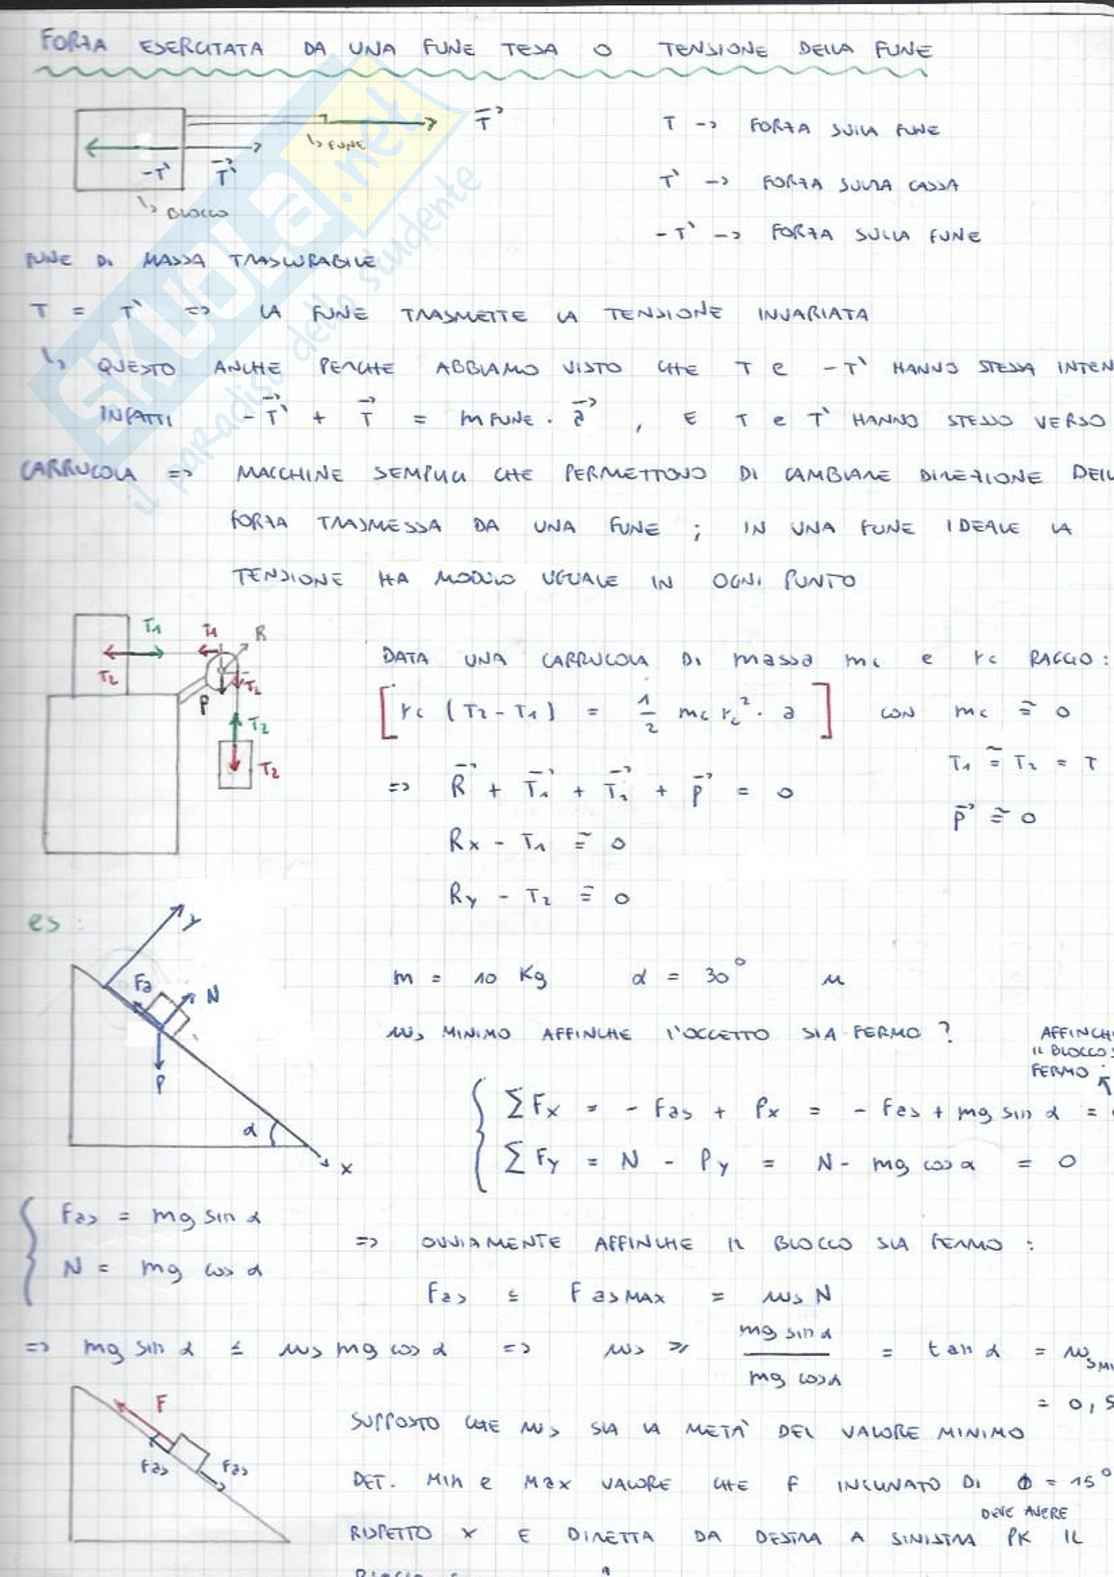 FORZA ESERCITATA DA UNA FUNE TESA O TENSIONE DELLA FUNE
T⃗
T -> FORZA SULLA FUNE
↳ FUNE
-T' T⃗'
T' -> FORZA SULLA CASSA
↳ BLOCCO
-T' -> FORZA SULLA FUNE
FUNE DI MASSA TRASCURABILE
T = T' => LA FUNE TRASMETTE LA TENSIONE INVARIATA
↳ QUESTO ANCHE PERCHE ABBIAMO VISTO CHE T e -T' HANNO STESSA INTEN
INFATTI -T⃗' + T⃗ = m FUNE · a⃗ , E T e T' HANNO STESSO VERSO
CARRUCOLA => MACCHINE SEMPLICI CHE PERMETTONO DI CAMBIARE DIREZIONE DELL
FORZA TRASMESSA DA UNA FUNE ; IN UNA FUNE IDEALE LA
TENSIONE HA MODULO UGUALE IN OGNI PUNTO
T1 T1 R
T2 T2
P
T2
T2
DATA UNA CARRUCOLA DI massa mc e rc RAGGIO :
[ rc (T2 - T1) = 1/2 mc rc² · a ] CON mc ≅ 0
T1 ≅ T2 = T
=> R⃗ + T⃗1 + T⃗2 + P⃗ = 0
P⃗ ≅ 0
Rx - T1 ≅ 0
Ry - T2 ≅ 0
es :
y
Fa N
P
α
x
m = 10 Kg α = 30° μ
μs MINIMO AFFINCHE L'OGGETTO SIA FERMO ?
AFFINCH
IL BLOCCO S
FERMO
∑ Fx = - Fas + Px = - Fas + mg sin α =
∑ Fy = N - Py = N - mg cos α = 0
Fas = mg sin α
N = mg cos α
=> OVVIAMENTE AFFINCHE IL BLOCCO SIA FERMO :
Fas ≤ Fas MAX = μs N
=> mg sin α ≤ μs mg cos α => μs ≥ mg sin α / mg cos α = tan α = μs MI
= 0,5
F
Fas Fas
SUPPOSTO CHE μs SIA LA METÀ DEL VALORE MINIMO
DET. Min e Max VALORE CHE F INCLINATO DI Φ = 15°
DEVE AVERE
RISPETTO x E DIRETTA DA DESTRA A SINISTRA PK IL
SKUOLA.net
il paradiso dello studente